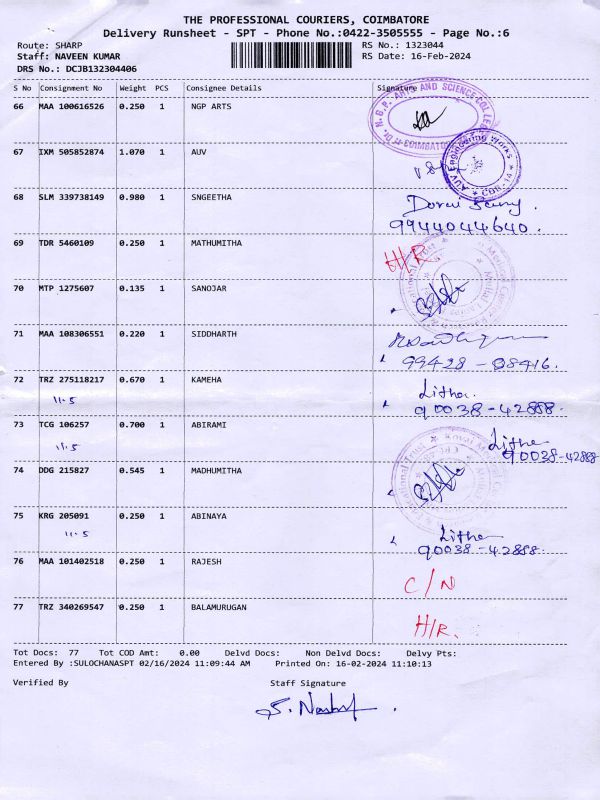 THE PROFESSIONAL COURIERS, COIMBATORE
Delivery Runsheet - SPT - Phone No.:0422-3505555 - Page No.:6
Route: SHARP RS No.: 1323044
Staff: NAVEEN KUMAR RS Date: 16-Feb-2024
DRS No.: DCJB132304406
S No Consignment No Weight PCS Consignee Details Signature
66 MAA 100616526 0.250 1 NGP ARTS
Dr. N.G.P. ARTS AND SCIENCE COLLEGE COIMBATORE
67 IXM 505852874 1.070 1 AUV
AUV Engineering Works CBE-14
68 SLM 339738149 0.980 1 SNGEETHA
9944044640.
69 TDR 5460109 0.250 1 MATHUMITHA H/R.
70 MTP 1275607 0.135 1 SANOJAR
71 MAA 108306551 0.220 1 SIDDHARTH
99428-08416.
72 TRZ 275118217 0.670 1 KAMEHA Litha.
11.5 90038-42888.
73 TCG 106257 0.700 1 ABIRAMI Litha
11.5 90038-42888
74 DDG 215827 0.545 1 MADHUMITHA
75 KRG 205091 0.250 1 ABINAYA Litha
11.5 90038-42888.
76 MAA 101402518 0.250 1 RAJESH C/N
77 TRZ 340269547 0.250 1 BALAMURUGAN H/R.
Tot Docs: 77 Tot COD Amt: 0.00 Delvd Docs: Non Delvd Docs: Delvy Pts:
Entered By :SULOCHANASPT 02/16/2024 11:09:44 AM Printed On: 16-02-2024 11:10:13
Verified By Staff Signature